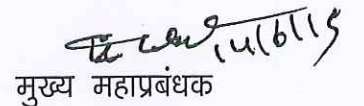 14/6/19
मुख्य महाप्रबंधक